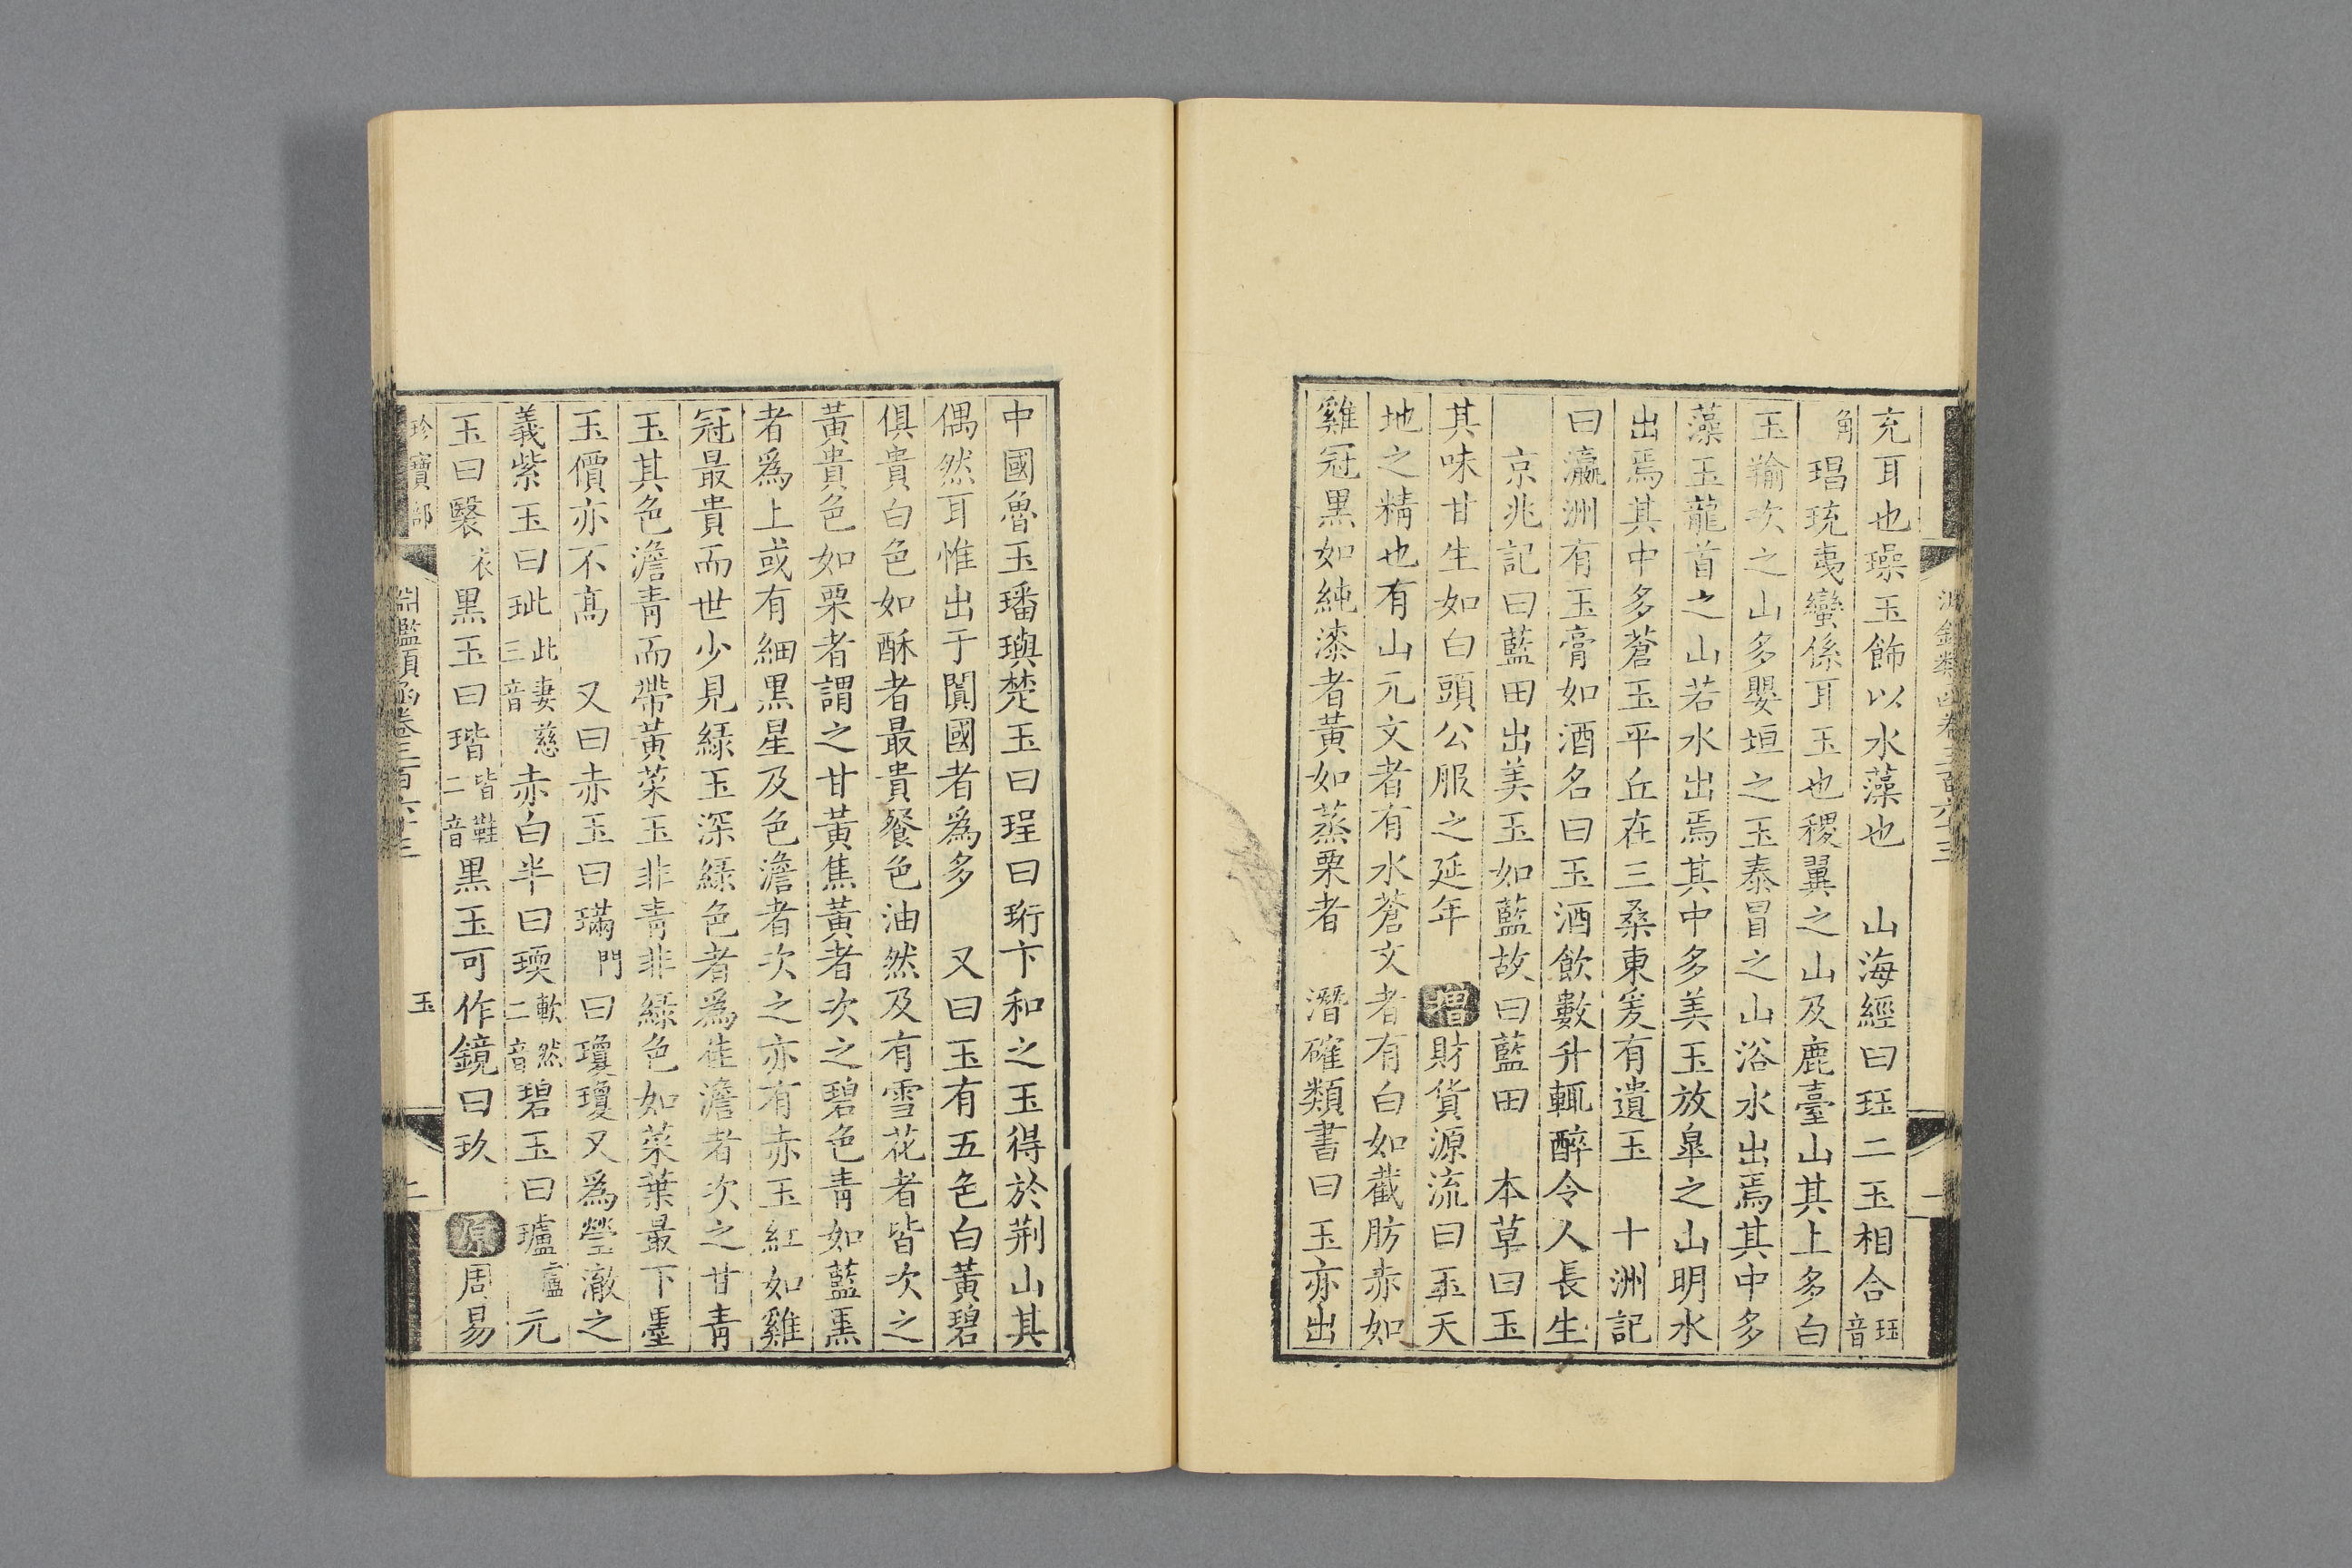 充耳也璪玉飾以水藻也　山海經曰珏二玉相合珏音
角　琩珫夷蠻係耳玉也稷翼之山及鹿臺山其上多白
玉羭次之山多嬰垣之玉泰冒之山浴水出焉其中多
藻玉龍首之山若水出焉其中多美玉放皐之山明水
出焉其中多蒼玉平丘在三桑東爰有遺玉　十洲記
曰瀛洲有玉膏如酒名曰玉酒飲數升輒醉令人長生
京兆記曰藍田出美玉如藍故曰藍田　本草曰玉
其味甘生如白頭公服之延年　增財貨源流曰玉天
地之精也有山元文者有水蒼文者有白如截肪赤如
雞冠黑如純漆者黃如蒸栗者　潛確類書曰玉亦出
中國魯玉璠璵楚玉曰珵曰珩卞和之玉得於荆山其
偶然耳惟出于闐國者為多　又曰玉有五色白黃碧
俱貴白色如酥者最貴餐色油然及有雪花者皆次之
黃貴色如栗者謂之甘黃焦黃者次之碧色青如藍黑
者為上或有細黑星及色澹者次之亦有赤玉紅如雞
冠最貴而世少見綠玉深綠色者為佳澹者次之甘青
玉其色澹青而帶黃菜玉非青非綠色如菜葉最下墨
玉價亦不高　又曰赤玉曰璊門曰瓊瓊又為瑩澈之
義紫玉曰玼此妻慈三音赤白半曰瑌軟然二音碧玉曰瓐盧元
玉曰瑿衣黑玉曰瑎皆鞋二音黑玉可作鏡曰玖　原周易
珍寶部　淵鑑類函卷三百六十三　玉　二